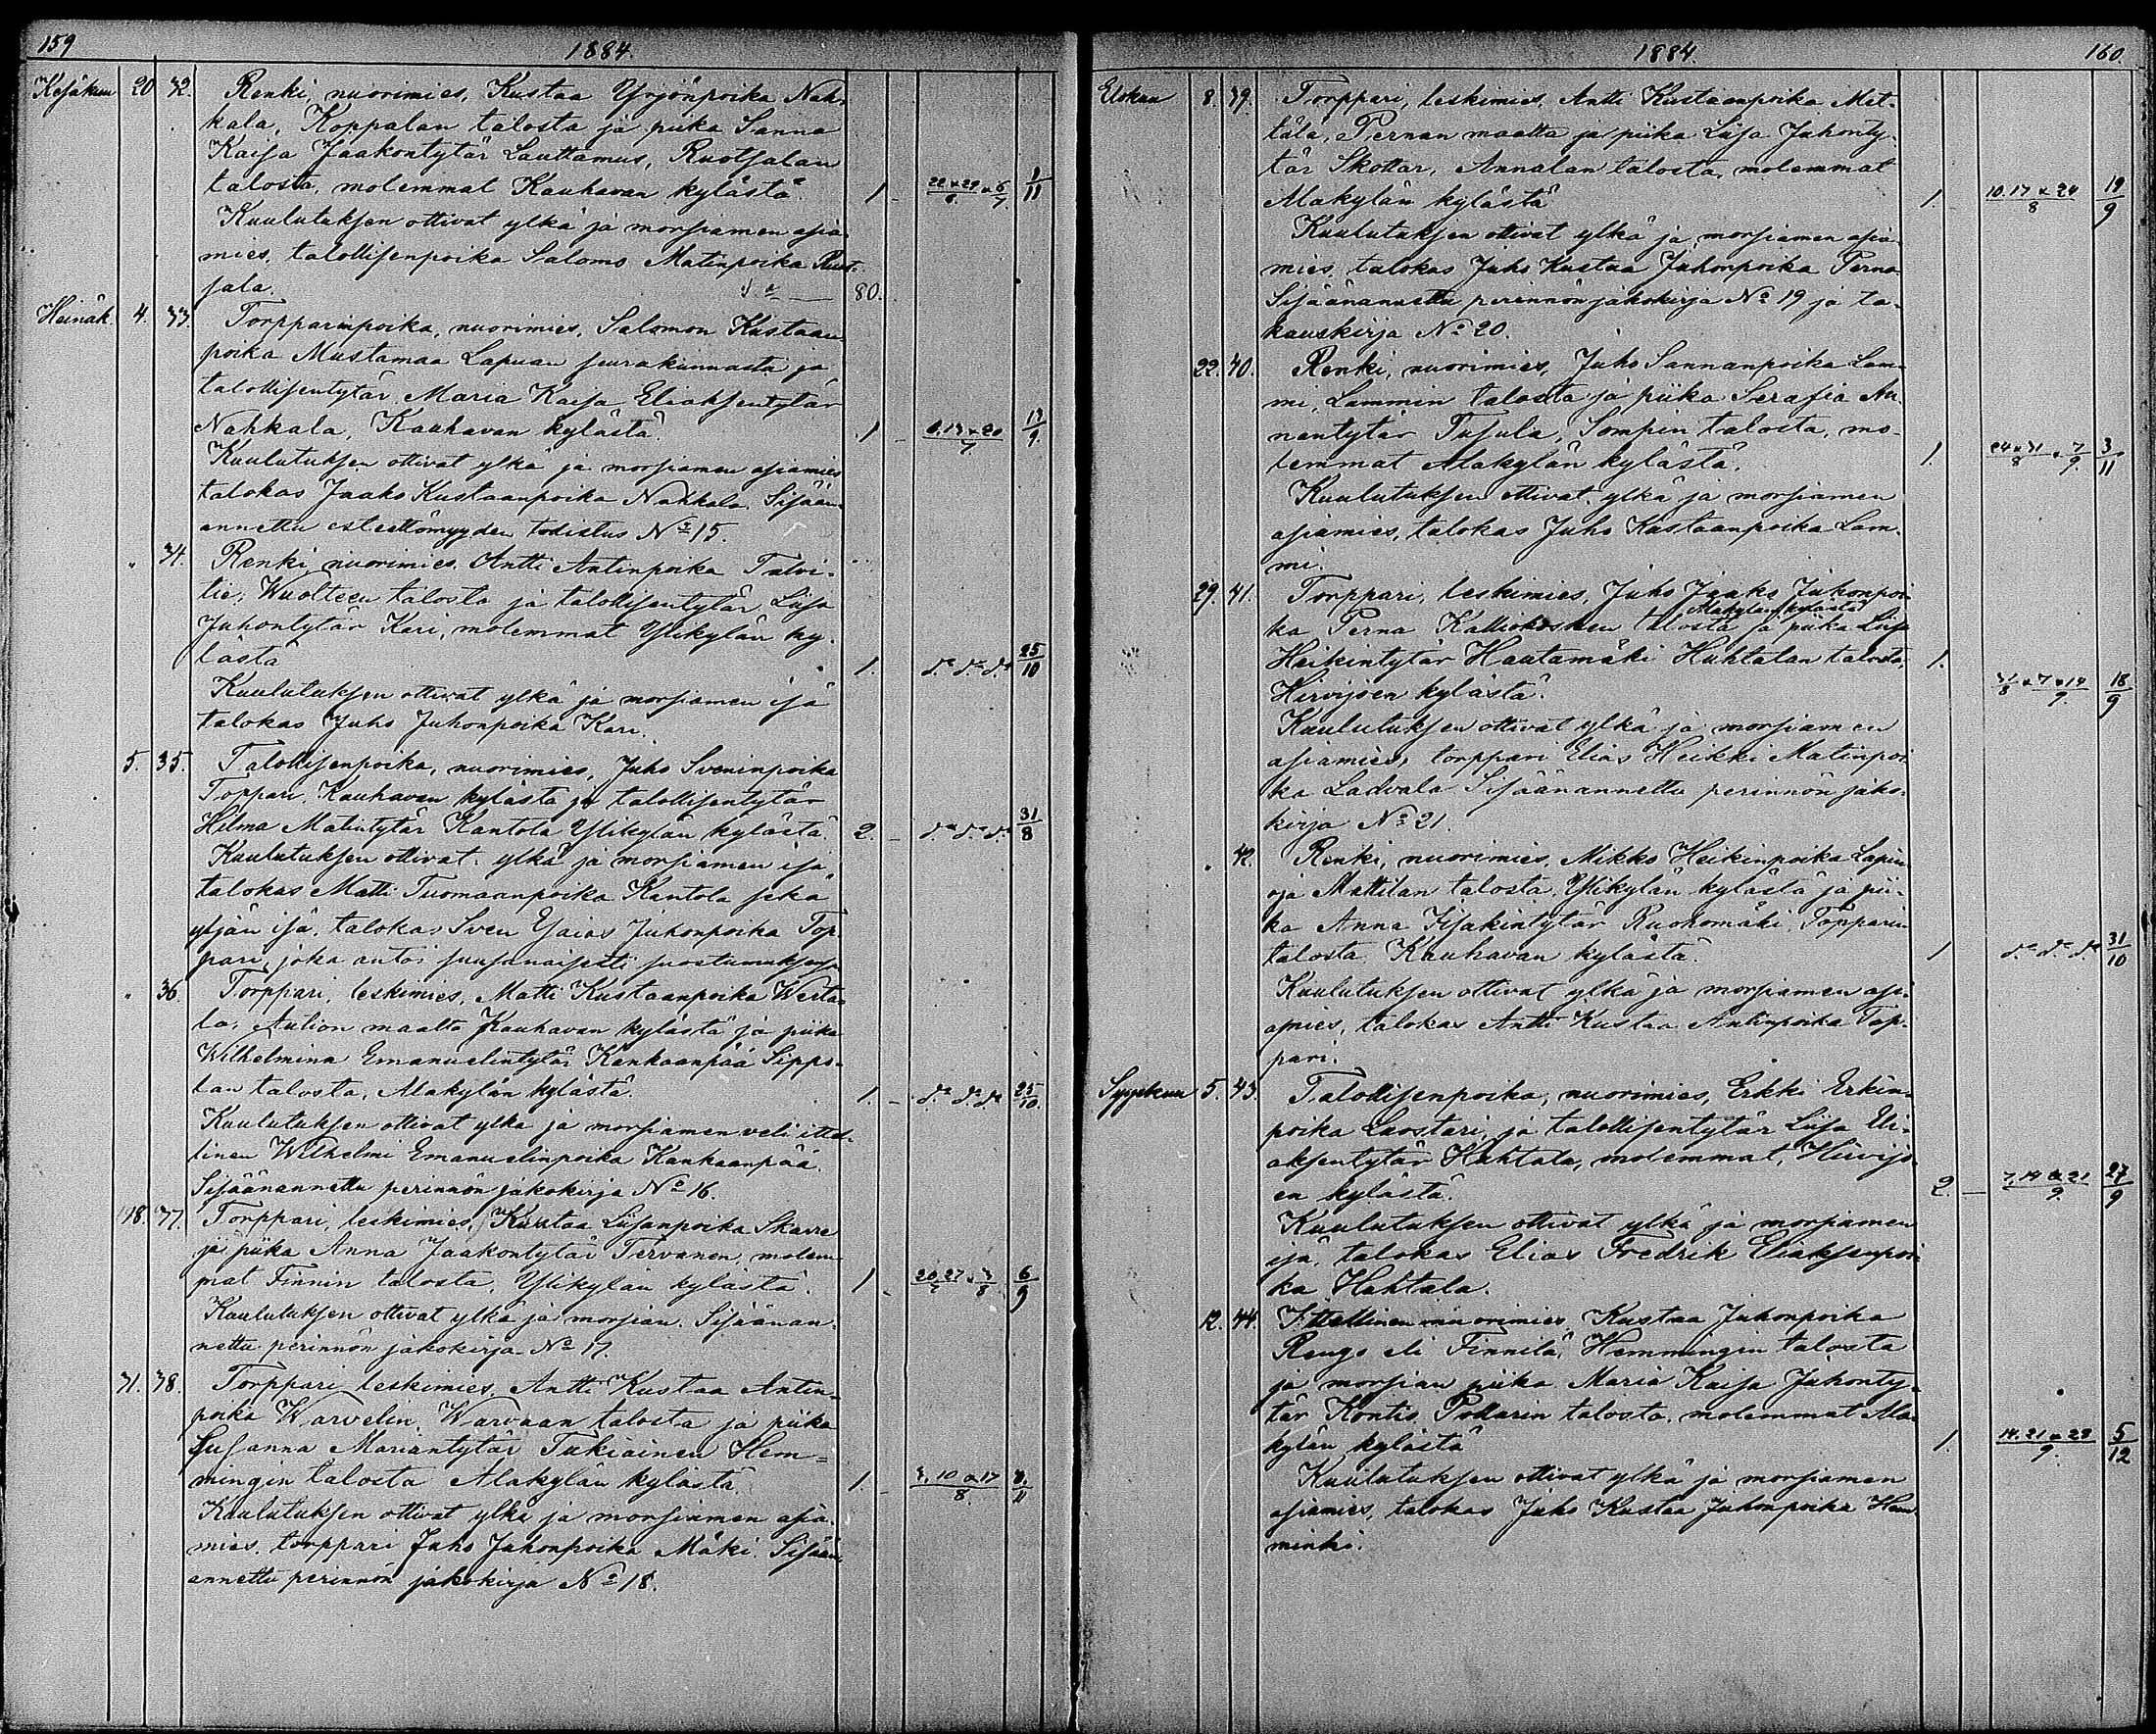 159
1884.
Kesäkuu 20 32. Renki, nuorimies, Kustaa Yrjönpoika Nah-
kala, Koppalan talosta ja piika Sanna
Kaisa Jaakontytär Lauttamus, Ruotsalan
talosta, molemmat Kauhavan kylästä. 1 1/11
Kuulutuksen ottivat ylkä ja morsiamen asia-
mies, talollisenpoika Salomo Matinpoika Ruot-
sala. 80.
Heinäk. 4. 33. Torpparinpoika, nuorimies, Salomon Kustaan-
poika Mustamaa Lapuan seurakunnasta ja
talollisentytär Maria Kaisa Eliaksentytär
Nahkala, Kauhavan kylästä. 1
Kuulutuksen ottivat ylkä ja morsiamen asiamies
talokas Jaako Kustaanpoika Nahkala. Sisään-
annettu esteettömyyden todistus No 15.
" 34. Renki nuorimies Antti Antinpoika Talvi-
tie, Wuolteen talosta ja talollisentytär Liisa
Juhontytär Kari, molemmat Ylikylän ky-
lästä 1. do do do 25/10
Kuulutuksen ottivat ylkä ja morsiamen isä
talokas Juho Juhonpoika Kari.
5. 35. Talollisenpoika, nuorimies, Juho Sveninpoika
Toppari, Kauhavan kylästä ja talollisentytär
Hilma Matintytär Kantola Ylikylän kylästä. 2. do do do 31/8
Kuulutuksen ottivat ylkä ja morsiamen isä
talokas Matti Tuomaanpoika Kantola sekä
yljän isä, talokas Sven Juhonpoika Top-
pari, joka antoi suusanaisesti suostumuksensa
" 36. Torppari, leskimies, Matti Kustaanpoika Werta-
la, Aution maalta Kauhavan kylästä ja piika
Wilhelmina Emanuelintytär Kankaanpää Sippo-
lan talosta, Alakylän kylästä. 1. do do do 25/10.
Kuulutuksen ottivat ylkä ja morsiamen veli itsel-
linen Wilhelmi Emanuelinpoika Kankaanpää.
Sisäänannettu perinnön jakokirja No 16.
18. 37. Torppari, leskimies, Kustaa Liisanpoika Skarre
ja piika Anna Jaakontytär Tervanen, molem-
mat Finnin talosta, Ylikylän kylästä. 1 6/9
Kuulutuksen ottivat ylkä ja morsian. Sisäänan-
nettu perinnön jakokirja No 17.
31. 38. Torppari leskimies, Antti Kustaa Antin-
poika Warvelin, Warvaan talosta ja piika
Susanna Mariantytär Tukiainen Hem-
mingin talosta Alakylän kylästä. 1. 3, 10 & 17/8.
Kuulutuksen ottivat ylkä ja morsiamen asia-
mies, torppari Juho Juhonpoika Mäki. Sisään-
annettu perinnön jakokirja No 18.
1884.
160.
Elokuu 8. 39. Torppari, leskimies, Antti Kustaanpoika Met-
tälä, Pernan maalta ja piika Liisa Juhonty-
tär Skottar, Annalan talosta, molemmat
Alakylän kylästä 1. 10. 17 & 24/8 19/9
Kuulutuksen ottivat ylkä ja morsiamen asia-
mies, talokas Juho Kustaa Juhonpoika Perna
Sisäänannettu perinnön jakokirja No 19 ja ta-
kauskirja No 20.
22. 40. Renki, nuorimies, Juho Sannanpoika Lam-
mi, Lammin talosta ja piika Serafia An-
nantytär Tusula, Sompin talosta, mo-
lemmat Alakylän kylästä. 1. 24 & 31/8 & 7/9. 3/11
Kuulutuksen ottivat ylkä ja morsiamen
asiamies, talokas Juho Kustaanpoika Lam-
mi.
29. 41. Torppari, leskimies, Juho Jaako Juhonpoi-
Alakylän kylästä
ka Perna Kalliokosken talosta ja piika Liisa
Heikintytär Hautamäki Huhtalan talosta, 1.
Hirvijoen kylästä. 31/8 & 7 & 14/9. 18/9
Kuulutuksen ottivat ylkä ja morsiamen
asiamies, torppari Elias Heikki Matinpoi-
ka Ladvala Sisäänannettu perinnön jako-
kirja No 21.
" 42. Renki, nuorimies, Mikko Heikinpoika Lapin-
oja Mattilan talosta, Ylikylän kylästä ja pii-
ka Anna Iisakintytär Ruohomäki, Topparin
talosta Kauhavan kylästä. 1 do do do 31/10
Kuulutuksen ottivat ylkä ja morsiamen asi-
amies, talokas Antti Kustaa Antinpoika Top-
pari.
Syyskuu 5. 43. Talollisenpoika, nuorimies, Erkki Erkin-
poika Luostari, ja talollisentytär Liisa Eli-
aksentytär Huhtala, molemmat, Hirvijo-
en kylästä. 2. 7, 14 & 21/9 27/9
Kuulutuksen ottivat ylkä ja morsiamen
isä, talokas Elias Fredrik Eliaksenpoi-
ka Huhtala.
12. 44. Itsellinen nuorimies Kustaa Juhonpoika
Rengo eli Finnilä, Hemmingin talosta
ja morsian piika Maria Kaisa Juhonty-
tär Kontio Pollarin talosta, molemmat Ala-
kylän kylästä 1. 14. 21 & 28/9. 5/12
Kuulutuksen ottivat ylkä ja morsiamen
asiamies, talokas Juho Kustaa Juhonpoika Hem-
minki.